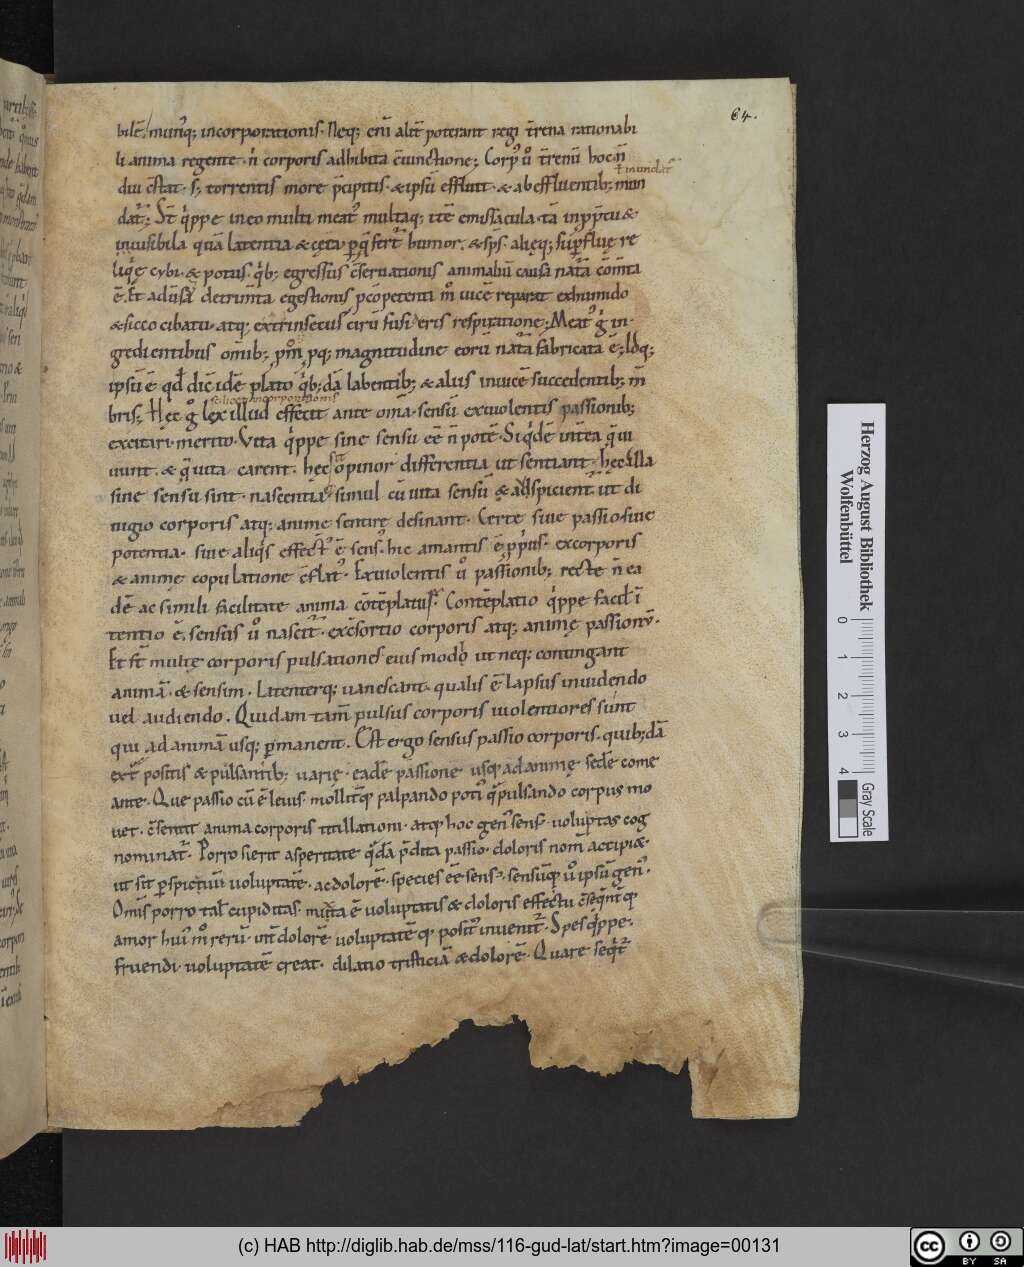 64.
bilē munꝰq; incorporationis. Neq; eni alit̄ poterant regi t̄rena rationabi
li anima regente. n̄ corporis adhibita c̄iunctione; Corpꝰ ů t̄renū hoc n̄
ł inundat᷑
diu c̄stat. s; torrentis more p̄cipitis. & ipsū effluit. & ab effluentib; mun
dat᷑. St̄ q̇ppe in eo multi meatꝰ multaq; itē emissacula. tā in p̄ptu &
inuisibila quā latentia & cęca. p q̄ fert᷑ humor. & sp̄s. alięq; sup̄fluę re
liq̇ę cybi. & potus. q̇b; egressus c̄seruationis animaliū causa nat᷑a cōm̄ta
ē. Et aduersa detrim̄ta egestionis p̄cōpetenti m̊ uicē reparat ex humido
& sicco cibatu. atq; extrinsetus circū fusi ęris respiratione; Meatꝰ g̊ in
gredientibus om̄ib; pro magnitudine eorū nat᷑a fabricata ē; Idq;
ipsū ē qd̄ dic̄ idē plato q̇b; dā labentib; & aliis inuicē succedentib; m̄
scilicet incorporationis
bris; Hec g̊ lex illud effecit ante om̄a. sensū ex uiolentis passionib;
excitari. merito. Vita q̇ppe sine sensu eē n̄ potē. Siq̇dē int̄ea q̄ ui
uunt. & q̄ uita carent. hęc ē opinor differentia ut sentiant. hęc illa
sine sensu sint. nascentia simul cū uita sensū & adspicient᷑ ut di
uigio corporis atq; anime sentire desinant. Certe siue passio. siue
potentia. siue aliq̇s effectꝰ ē sensꝰ. hic amantis ē p̄pus. ex corporis
& animę copulatione c̄flatꝰ. Ex uiolentis ů passionib; recte n̄ ea
dē ac simili facilitate anima cōtēplatur. Contēplatio q̇ppe facił ī
tentio ē. sensus ů nascit᷑. ex c̄sortio corporis atq; animę passionū.
Et st̄ multę corporis pulsationes eius modi ut neq; contingant
animā. & sensim. Latenterq; uanescant. qualis ē lapsus inuidendo
uel audiendo. Quidam tam̄ pulsus corporis uiolentiores sunt
qui ad animā usq; p̄manent. Est ergo sensus passio corporis. quib; dā
ext᷑ positis & pulsantib; uarię. eadē passione usq; ad animę sedē come
ante. Que passio cū ē leuis. mollit̄q; palpando potiꝰ q̄ pulsando corpus mo
uet. c̄sentit anima corporis titillationi. atq; hoc genꝰ sensꝰ uoluptas cog
nominat᷑. Porro si erit asperitate q̄dā p̄dita passio. doloris nom̄ accipi&.
ut sit p̄spicuū uoluptatē. ac dolorē. species eē sensꝰ. sensūq; ů ipsū genꝰ.
Om̄is porro tał cupiditas. mixta ē uoluptatis & doloris effectu c̄seq̄nt̄q;
amor huiꝰ m̊ rerū. int̄ dolorē uoluptatē q; positꝰ inuenit᷑. Spes q̇ppe.
fruendi. uoluptatē creat. dilatio tristiciā & dolorē. Quare seq̇t᷑
Herzog August Bibliothek
Wolfenbüttel
0 1 2 3 4
Gray Scale
(c) HAB http://diglib.hab.de/mss/116-gud-lat/start.htm?image=00131
cc BY SA